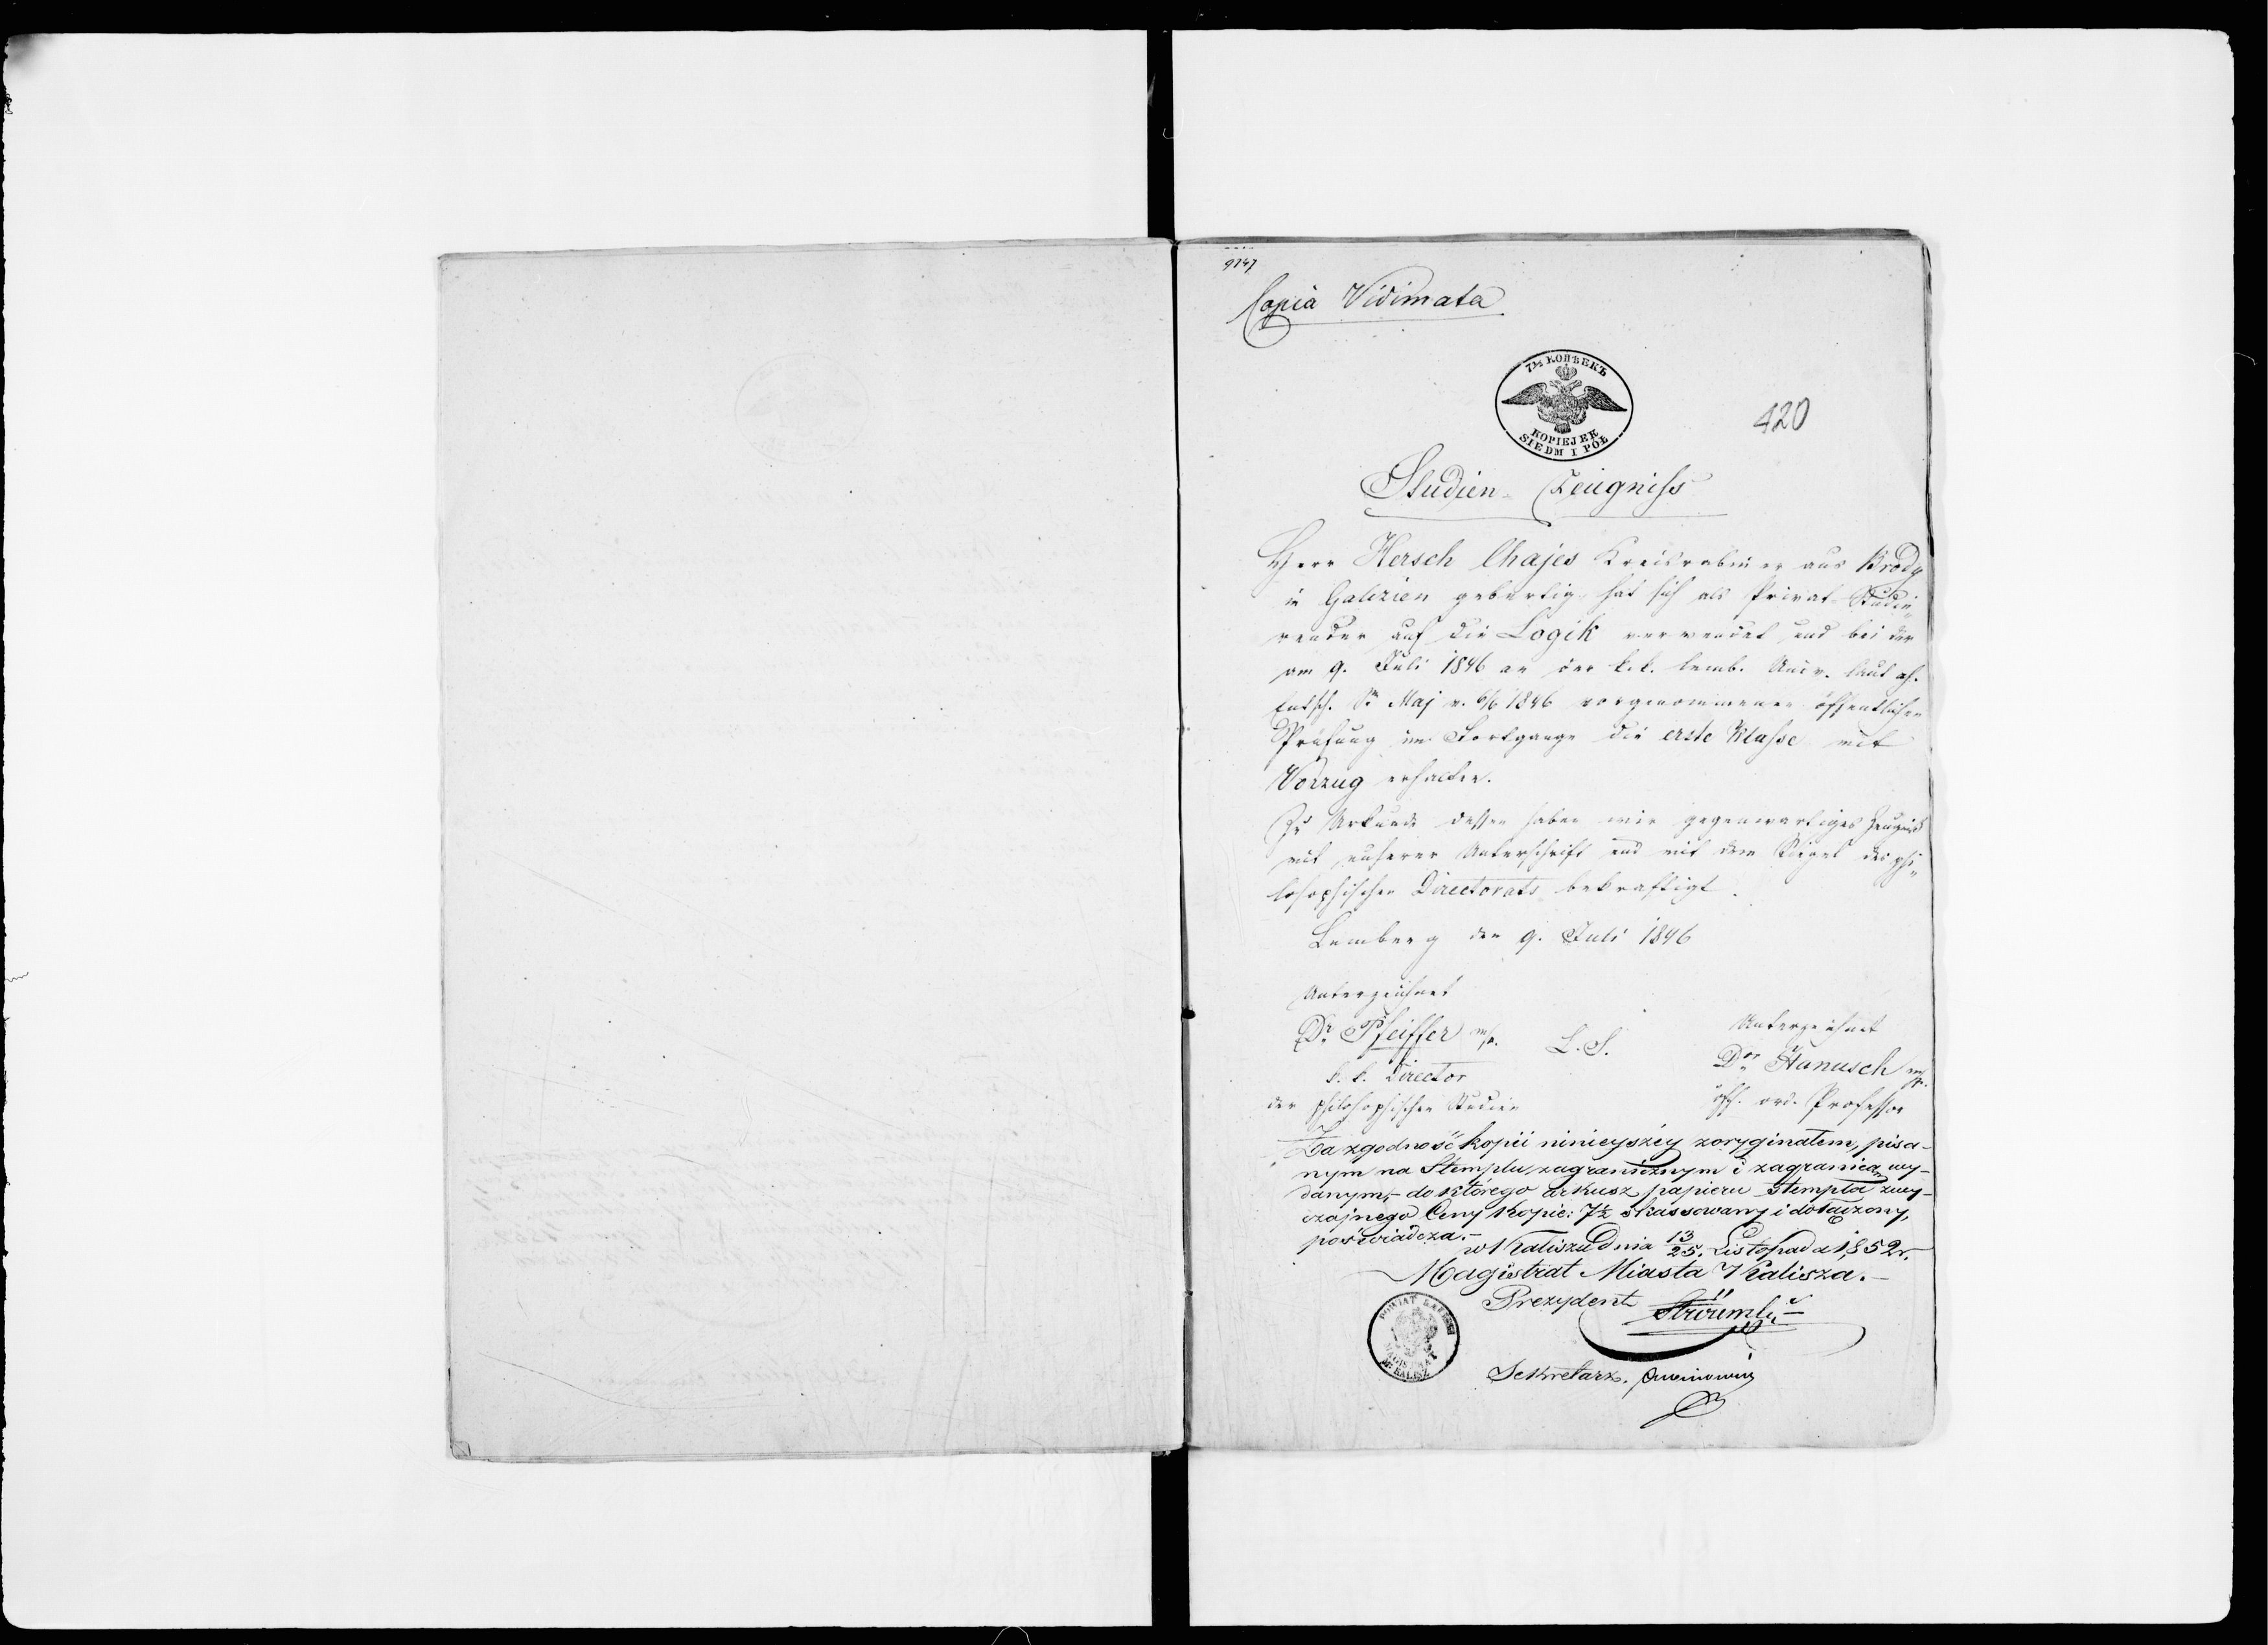 9747
Copia Vidimata
7½ КОПѢЕКЪ
KOPIEJEK
SIEDM I PÓŁ
420
Studien-Zeugniss
Herr Hersch Chajes Kreisrabiner aus Brody
in Galizien gebürtig hat sich als Privat-Studi„
render auf die Logik verwendet und bei der
am 9. Juli 1846 an der k.k. lemb. Univ. laut ah.
Entsch. Sr Maj v. 6/6 1846 vorgenommenen öffentlichen
Prüfung im Fortgange die erste Klasse mit
Vorzug erhalten.
Zu Urkunde dessen haben wir gegenwärtiges Zeugniß
mit unserer Unterschrift und mit dem Siegel des phi„
losophischen Directorats bekräftigt.
Lemberg den 9. Juli 1846
Unterzeichnet
Dr. Pfeiffer m/p.
L.S.
k. k. Director
der philosophischen Studien
Unterzeichnet
Dor Hanusch m/p.
öff. ord. Professor
Za zgodność kopii niniejszéy z oryginałem, pisa-
nym na Stemplu zagranicznym i zagranicą wy-
danym, - do którego arkusz papieru Stempla zwy-
czajnego Ceny Kopie: 7½ skassowany i dołączony,
poświadcza.-
w Kaliszu dnia 13/25. Listopada 1852 r.
Magistrat Miasta Kalisza.-
Prezydent
POWIAT KALISKI
MAGISTRAT
M. KALISZ
Sekretarz.